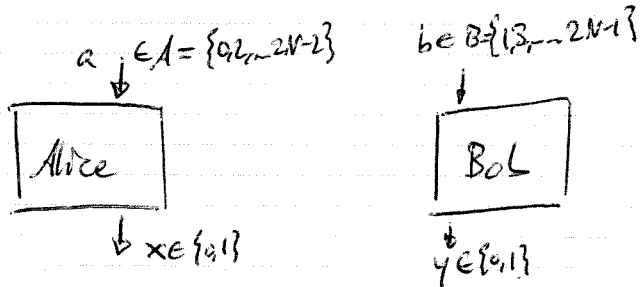 a ∈ A = {0,2,...2N-2}
b ∈ B={1,3,...2N-1}
Alice
Bob
x ∈ {0,1}
y ∈ {0,1}